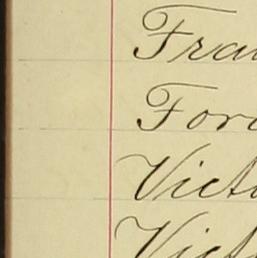 Fra
For
Victo
Vict